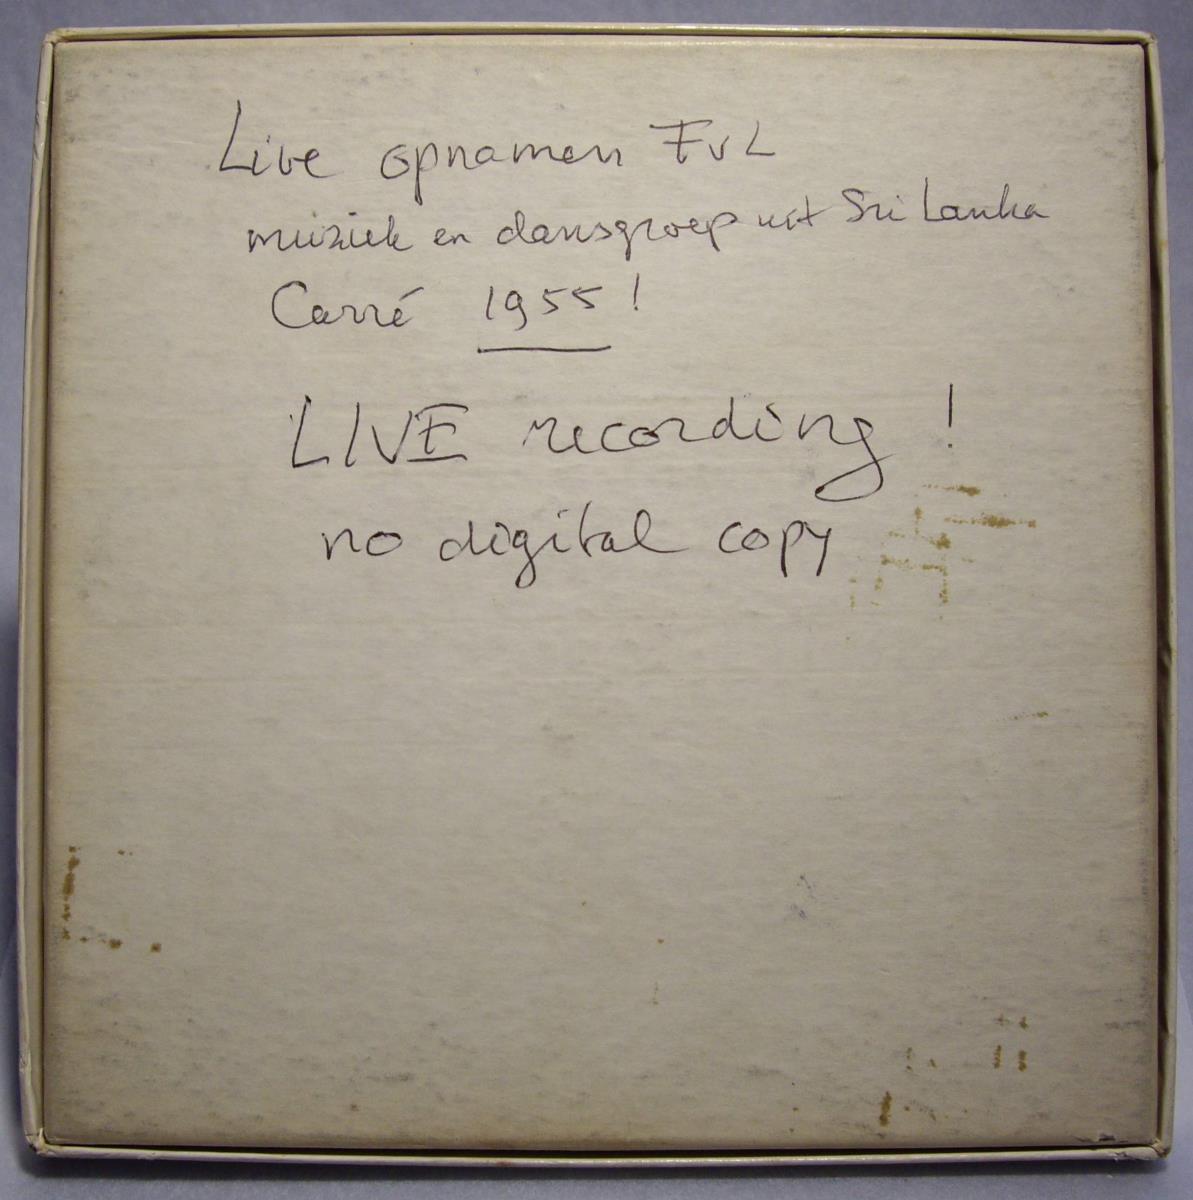 Live opnamen FvL
muziek en dansgroep uit Sri Lanka
Carré 1955!
LIVE recording!
no digital copy